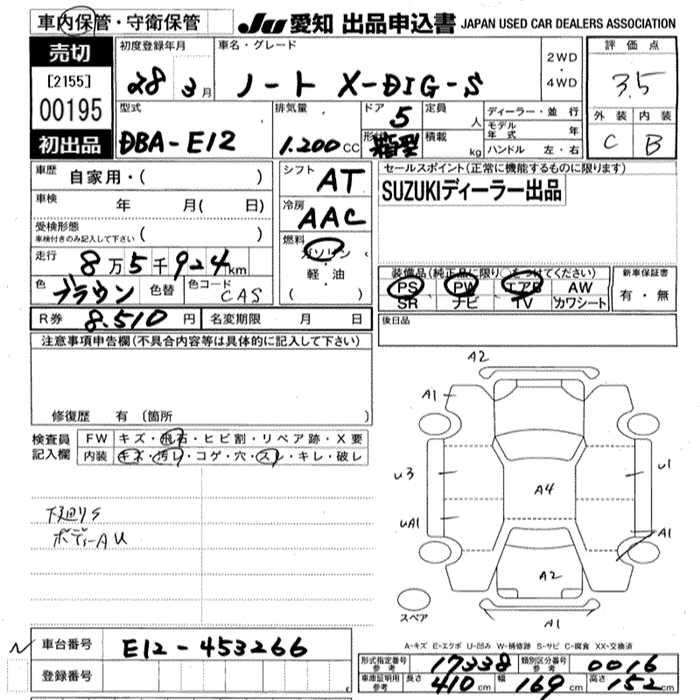 車内保管・守衛保管
JU 愛知 出品申込書 JAPAN USED CAR DEALERS ASSOCIATION
売切
[2155]
00195
初出品
初度登録年月
28年 3月
車名・グレード
ノート X-DIG-S
2WD
・
4WD
評価点
3.5
外装 内装
C B
型式
DBA-E12
排気量
1.200CC
ドア
5
形状
箱型
定員
人
積載
kg
ディーラー・並行
モデル年式 年
ハンドル 左・右
車歴
自家用・( )
車検
年 月( 日)
受検形態
車検付きのみ記入して下さい
( )
走行
8万5千924km
色
ブラウン
色替
色コード
CAS
シフト
AT
冷房
AAC
燃料
ガソリン
・
軽・油
( )
セールスポイント(正常に機能するものに限ります)
SUZUKIディーラー出品
装備品(純正品に限り○をつけてください)
PS PW エアB AW
SR ナビ TV カワシート
新車保証書
有・無
後日品
R券 8.510円
名変期限 月 日
注意事項申告欄(不具合内容等は具体的に記入して下さい)
修復歴 有(箇所 )
検査員
記入欄
FW キズ・飛石・ヒビ割・リペア跡・X要
内装 キズ・汚レ・コゲ・穴・スレ・キレ・破レ
下回りS
ボディーAU
A2
A1
U3
U1
A4
UA1
A1
A2
A1
スペア
A-キズ E-エクボ U-凹み W-補修跡 S-サビ C-腐食 XX-交換済
車台番号
E12-453266
登録番号
形式指定番号
参考
17338
類別区分番号
参考
0016
車庫証明用
参考
長さ 410cm 幅 169cm 高さ 152cm